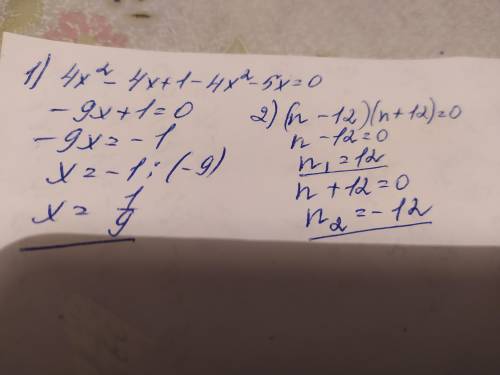 1) 4x² - 4x + 1 - 4x² - 5x = 0
- 9x + 1 = 0
- 9x = - 1
x = - 1 : (-9)
x = 1/9
2) (n - 12)(n + 12) = 0
n - 12 = 0
n₁ = 12
n + 12 = 0
n₂ = - 12